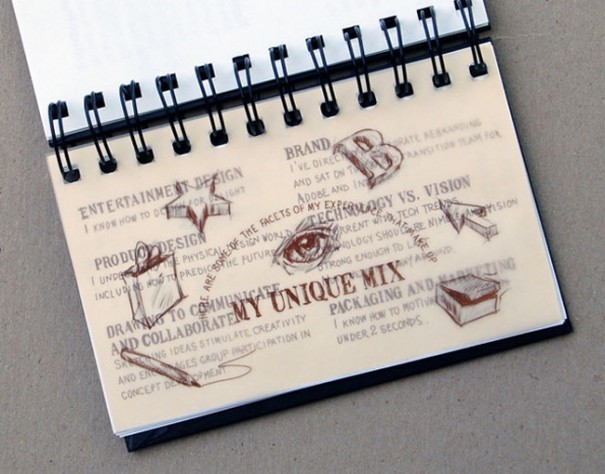 ENTERTAINMENT DESIGN
I KNOW HOW TO DESIGN FOR LIGHT
PRODUCT DESIGN
THE PHYSICAL DESIGN WORLD
INCLUDING HOW TO PREDICT THE FUTURE
DRAWING TO COMMUNICATE
AND COLLABORATE
SKETCHING IDEAS STIMULATE CREATIVITY
AND ENCOURAGES GROUP PARTICIPATION IN
CONCEPT DEVELOPMENT
BRAND
B
I'VE DIRECTED CORPORATE REBRANDING
AND SAT ON THE TRANSITION TEAM FOR
ADOBE AND
TECHNOLOGY VS. VISION
CURRENT WITH TECH TRENDS
TECHNOLOGY SHOULD BE VISION
STRONG ENOUGH TO
PACKAGING AND MARKETING
I KNOW HOW TO
UNDER 2 SECONDS.
HERE ARE SOME OF THE FACETS OF MY EXPERIENCE THAT MAKE UP
MY UNIQUE MIX